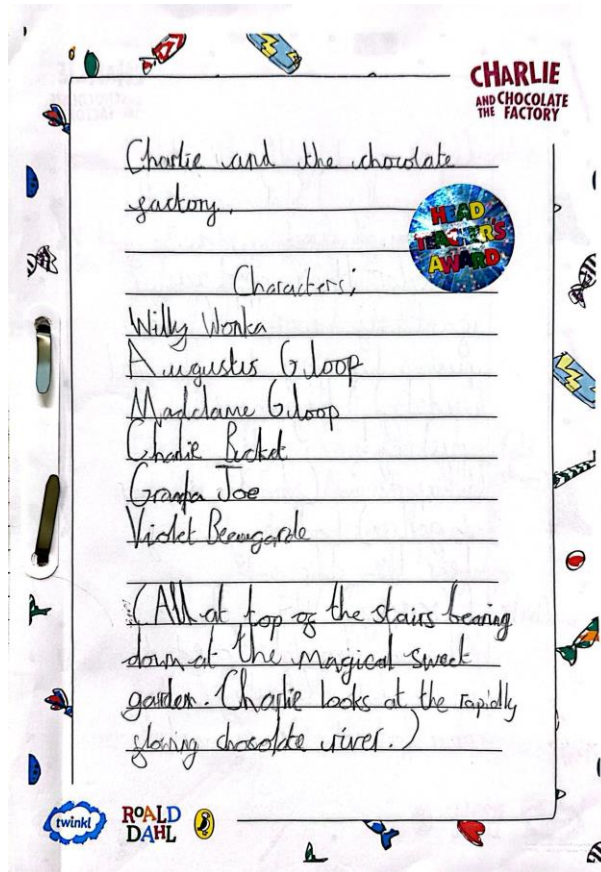 CHARLIE
AND CHOCOLATE
THE FACTORY
Charlie and the chocolate
factory.
HEAD
TEACHER'S
AWARD
Characters;
Willy Wonka
Augustus Gloop
Maddame Gloop
Charlie Bucket
Grampa Joe
Violet
(All at top of the stairs bearing
down at the magical sweet
garden. Charlie looks at the rapidly
flowing chocolate river.)
twinkl
ROALD
DAHL